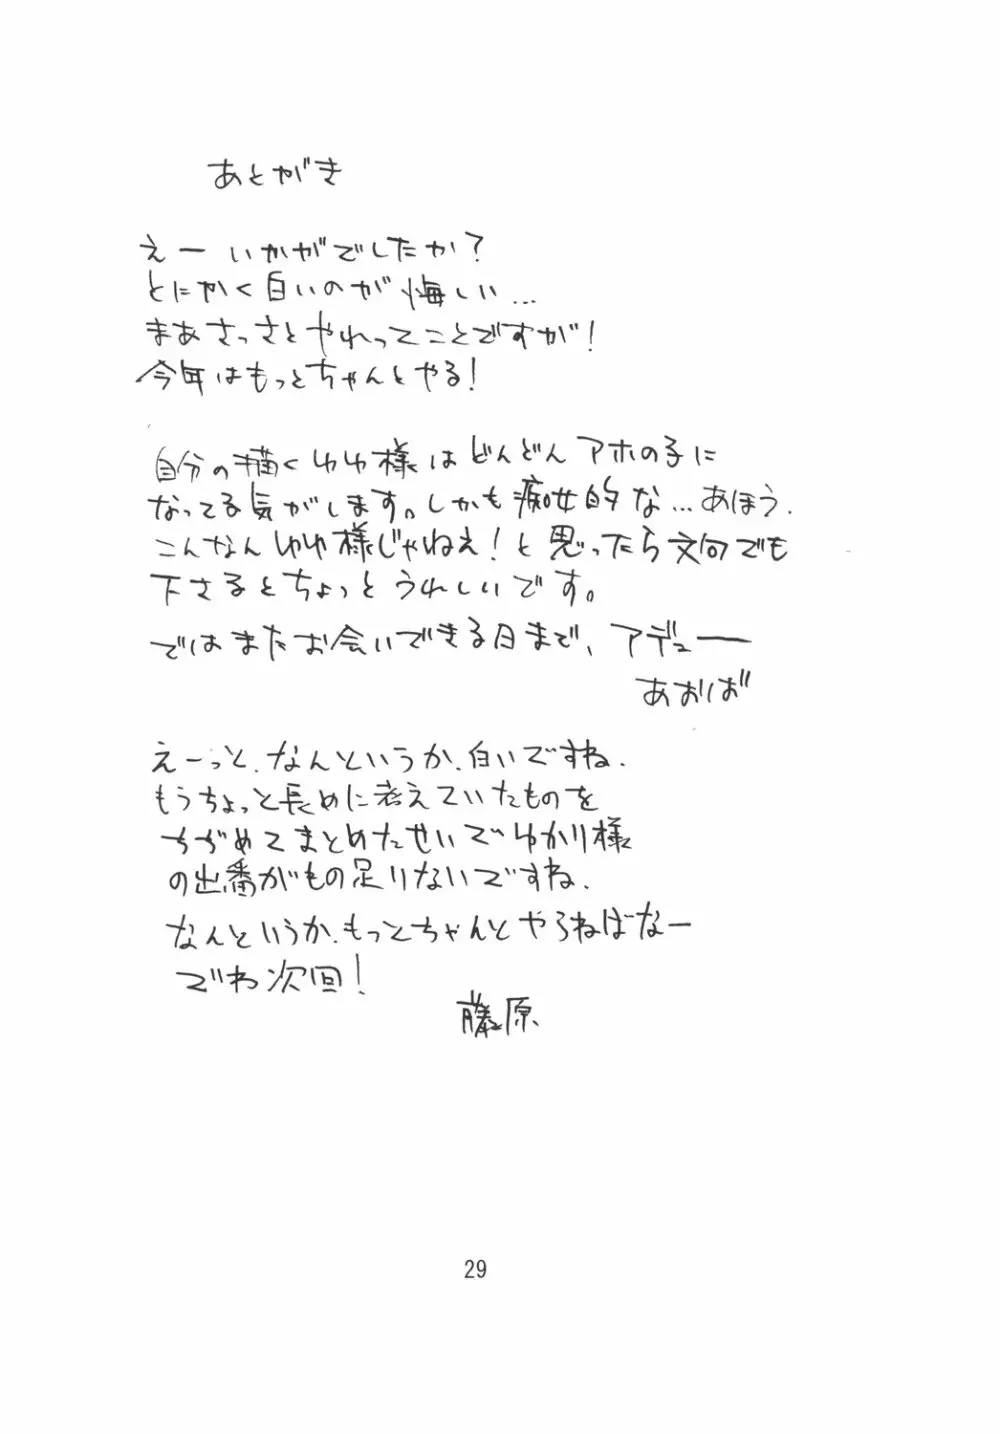 あとがき
えー いかがでしたか?
とにかく白いのが悔しい...
まあさっさとやれってことですが!
今年はもっとちゃんとやる!
自分の描くゆゆ様はどんどんアホの子に
なってる気がします。しかも痴女的な...あほう.
こんなんゆゆ様じゃねえ!と思ったら文句でも
下さるとちょっとうれしいです。
ではまたお会いできる日まで、アデュー
あおば
えーっと、なんというか、白いですね.
もうちょっと長めに考えていたものを
ちぢめてまとめたせいでゆかり様
の出番がもの足りないですね.
なんというか、もっとちゃんとやらねばなー
でわ次回!
藤原
29